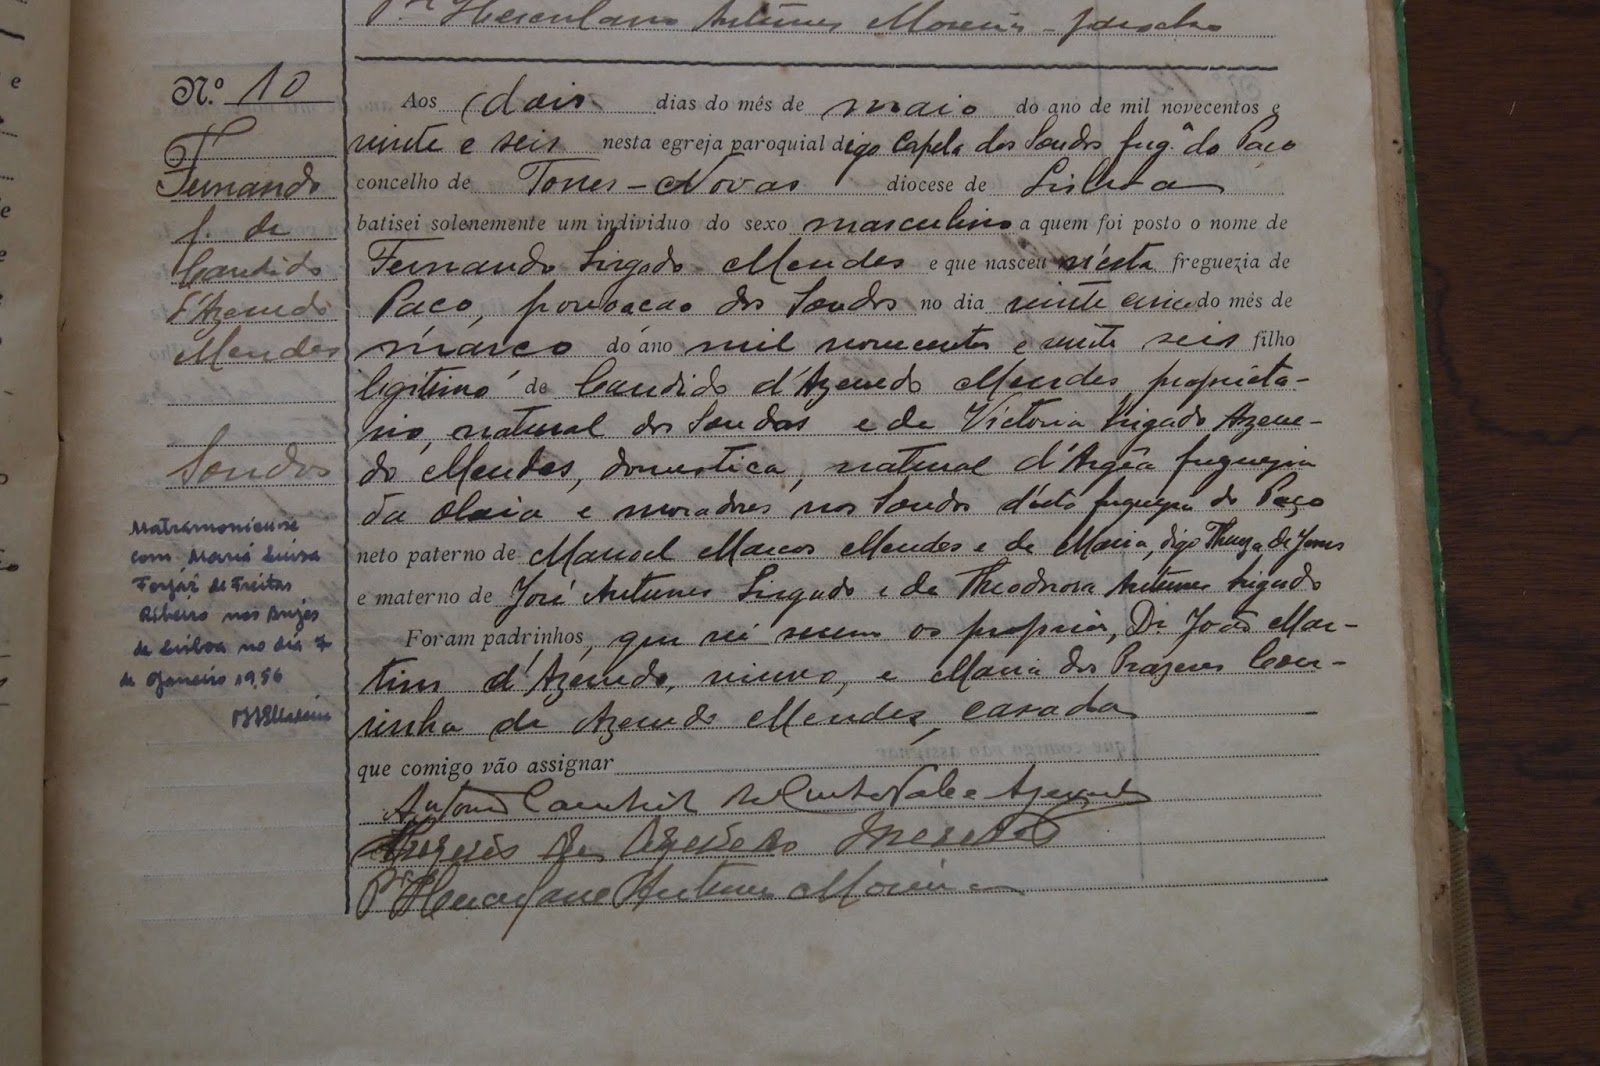 Pe. Herculano Antunes Moreira - parocho
N.º 10
Fernando
f. de
Candido
d'Azevedo
Mendes
Soudos
Matramoniou-se
com Maria Luisa
Forjaz de Freitas
Ribeiro nos Anjos
de Lisboa no dia 7
de Janeiro 1956
Aos dois dias do mês de maio do ano de mil novecentos e
vinte e seis nesta egreja paroquial digo Capela dos Soudos freg.ª do Paço
concelho de Torres-Novas diocese de Lisboa
batisei solenemente um individuo do sexo masculino a quem foi posto o nome de
Fernando Lingado Mendes e que nasceu n'esta freguezia de
Paço, povoação dos Soudos no dia vinte e cinco do mês de
março do ano mil novecentos e vinte seis filho
legitimo de Candido d'Azevedo Mendes proprieta-
rio, natural dos Soudos e de Victoria Azeve-
do Mendes, domestica, natural d'Argêa freguezia
da Olaia e moradores nos Soudos d'esta freguezia do Paço
neto paterno de Manoel Marcos Mendes e de Maria, digo Thereza de Jesus
e materno de José Antunes e de Theodora Antunes
Foram padrinhos, que sei serem os proprios, Dr. João Mar-
tins d'Azevedo, viuvo, e Maria dos Prazeres
de Azevedo Mendes, casada
que comigo vão assignar
Pe. Herculano Antunes Moreira